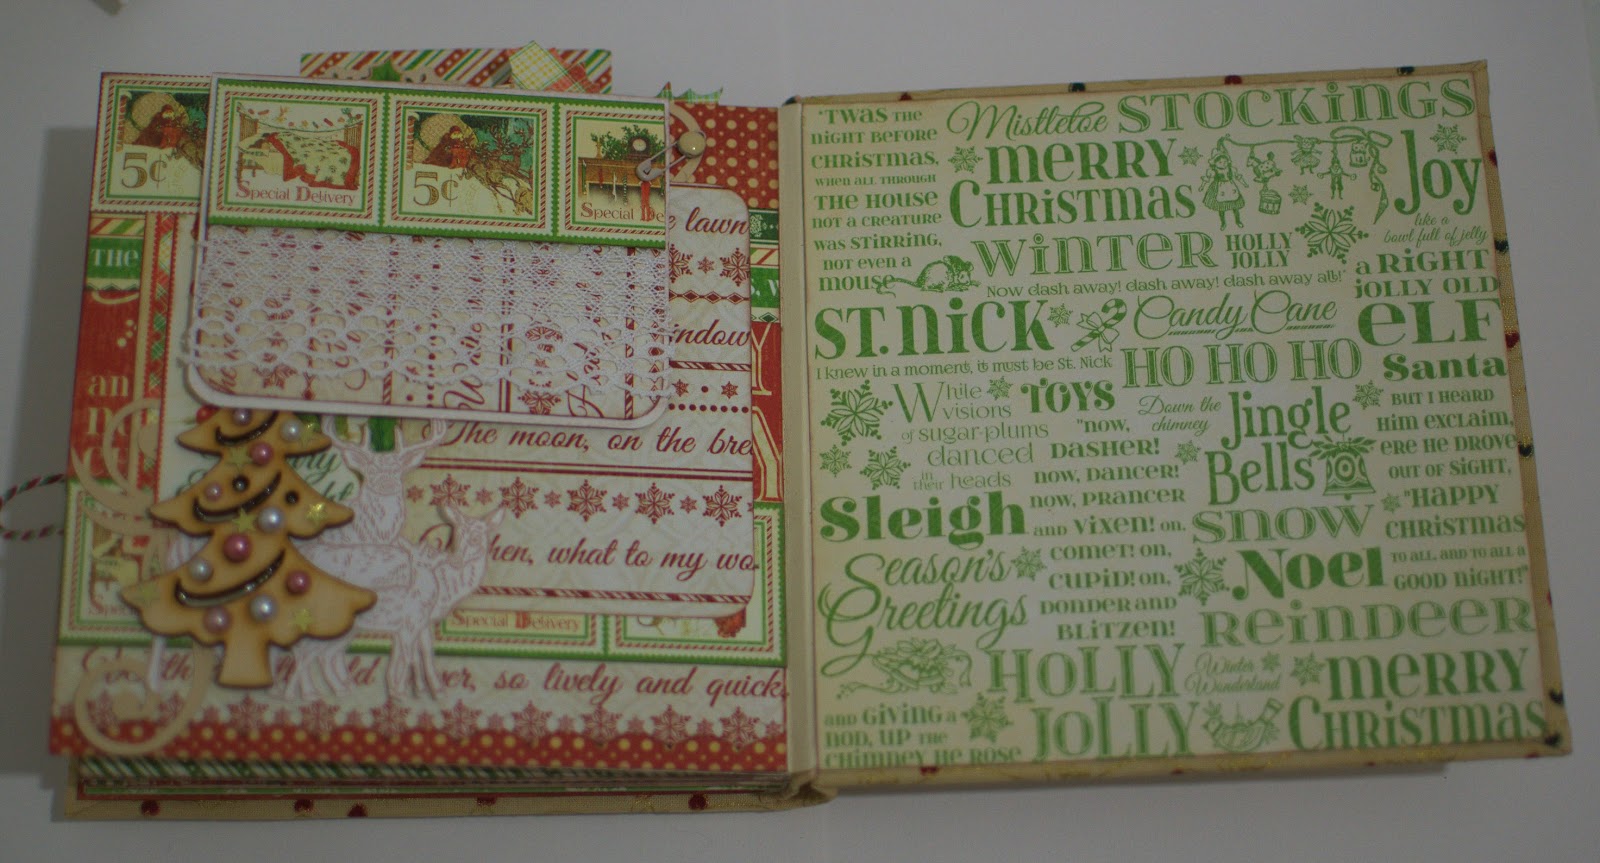 5¢
Special Delivery
5¢
Special De
THE
lawn
indow
an
The moon, on the bre
hen, what to my wo
Special Delivery
so lively and quick
'TWAS THE
NIGHT BEFORE
CHRISTMAS,
WHEN ALL THROUGH
THE HOUSE
NOT A CREATURE
WAS STIRRING,
NOT EVEN A
MOUSE
Mistletoe
STOCKINGS
MERRY
CHRISTMAS
Joy
like a
bowl full of jelly
WINTER
HOLLY
JOLLY
Now dash away! dash away! dash away all!"
a RIGHT
JOLLY OLD
ELF
ST. NICK
I knew in a moment, it must be St. Nick
Candy Cane
HO HO HO
Santa
While
visions
of sugar-plums
danced
in their heads
TOYS
"now,
DASHER!
now, DANCER!
now, PRANCER
and VIXEN! on,
COMET! on,
CUPID! on,
DONDER and
BLITZEN!
Down the
chimney
Jingle
Bells
BUT I HEARD
HIM EXCLAIM,
ERE HE DROVE
OUT OF SIGHT,
"HAPPY
CHRISTMAS
TO ALL, AND TO ALL A
GOOD NIGHT!"
Sleigh
SNOW
Season's
Greetings
Noel
REINDEER
HOLLY
JOLLY
Winter
Wonderland
MERRY
CHRISTMAS
AND GIVING A
NOD, UP THE
CHIMNEY HE ROSE